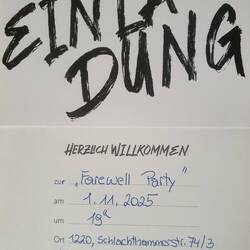 EINLA
DUNG
HERZLICH WILLKOMMEN
zur „Farewell Party“
am 1.11.2025
um 19h
Ort 1220, Schlachthammerstr. 74/3